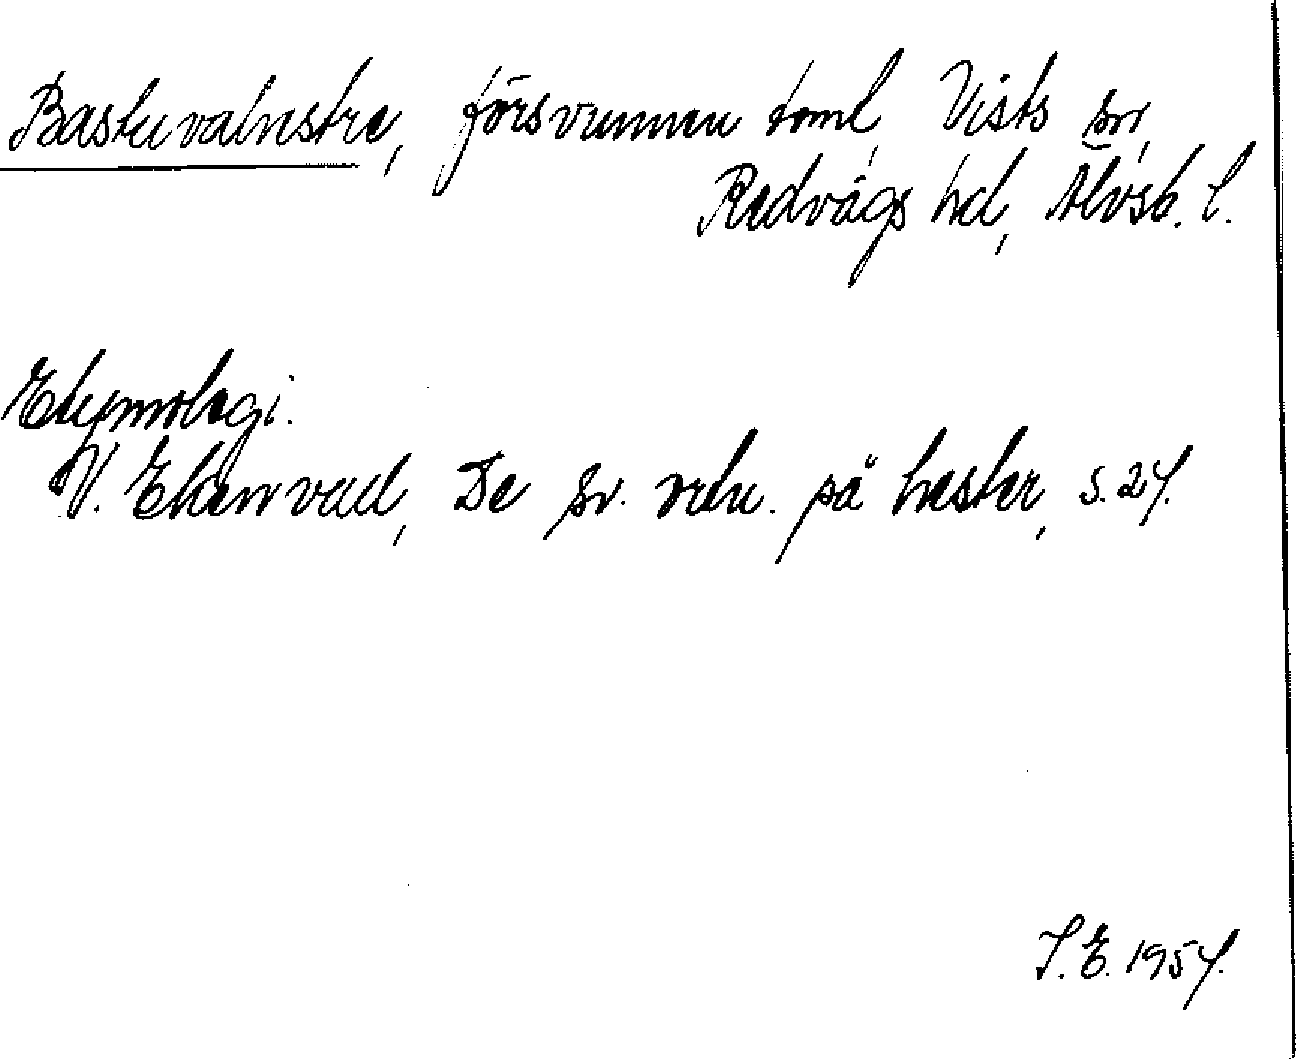 Bastuvalnstre, försvunnen toml, Vists sn,
Redvägs hd, Älvsb. l.
Etymologi.
V. Ekenvall, De sv. ortn. på hester, s. 27.
I. E. 1957.